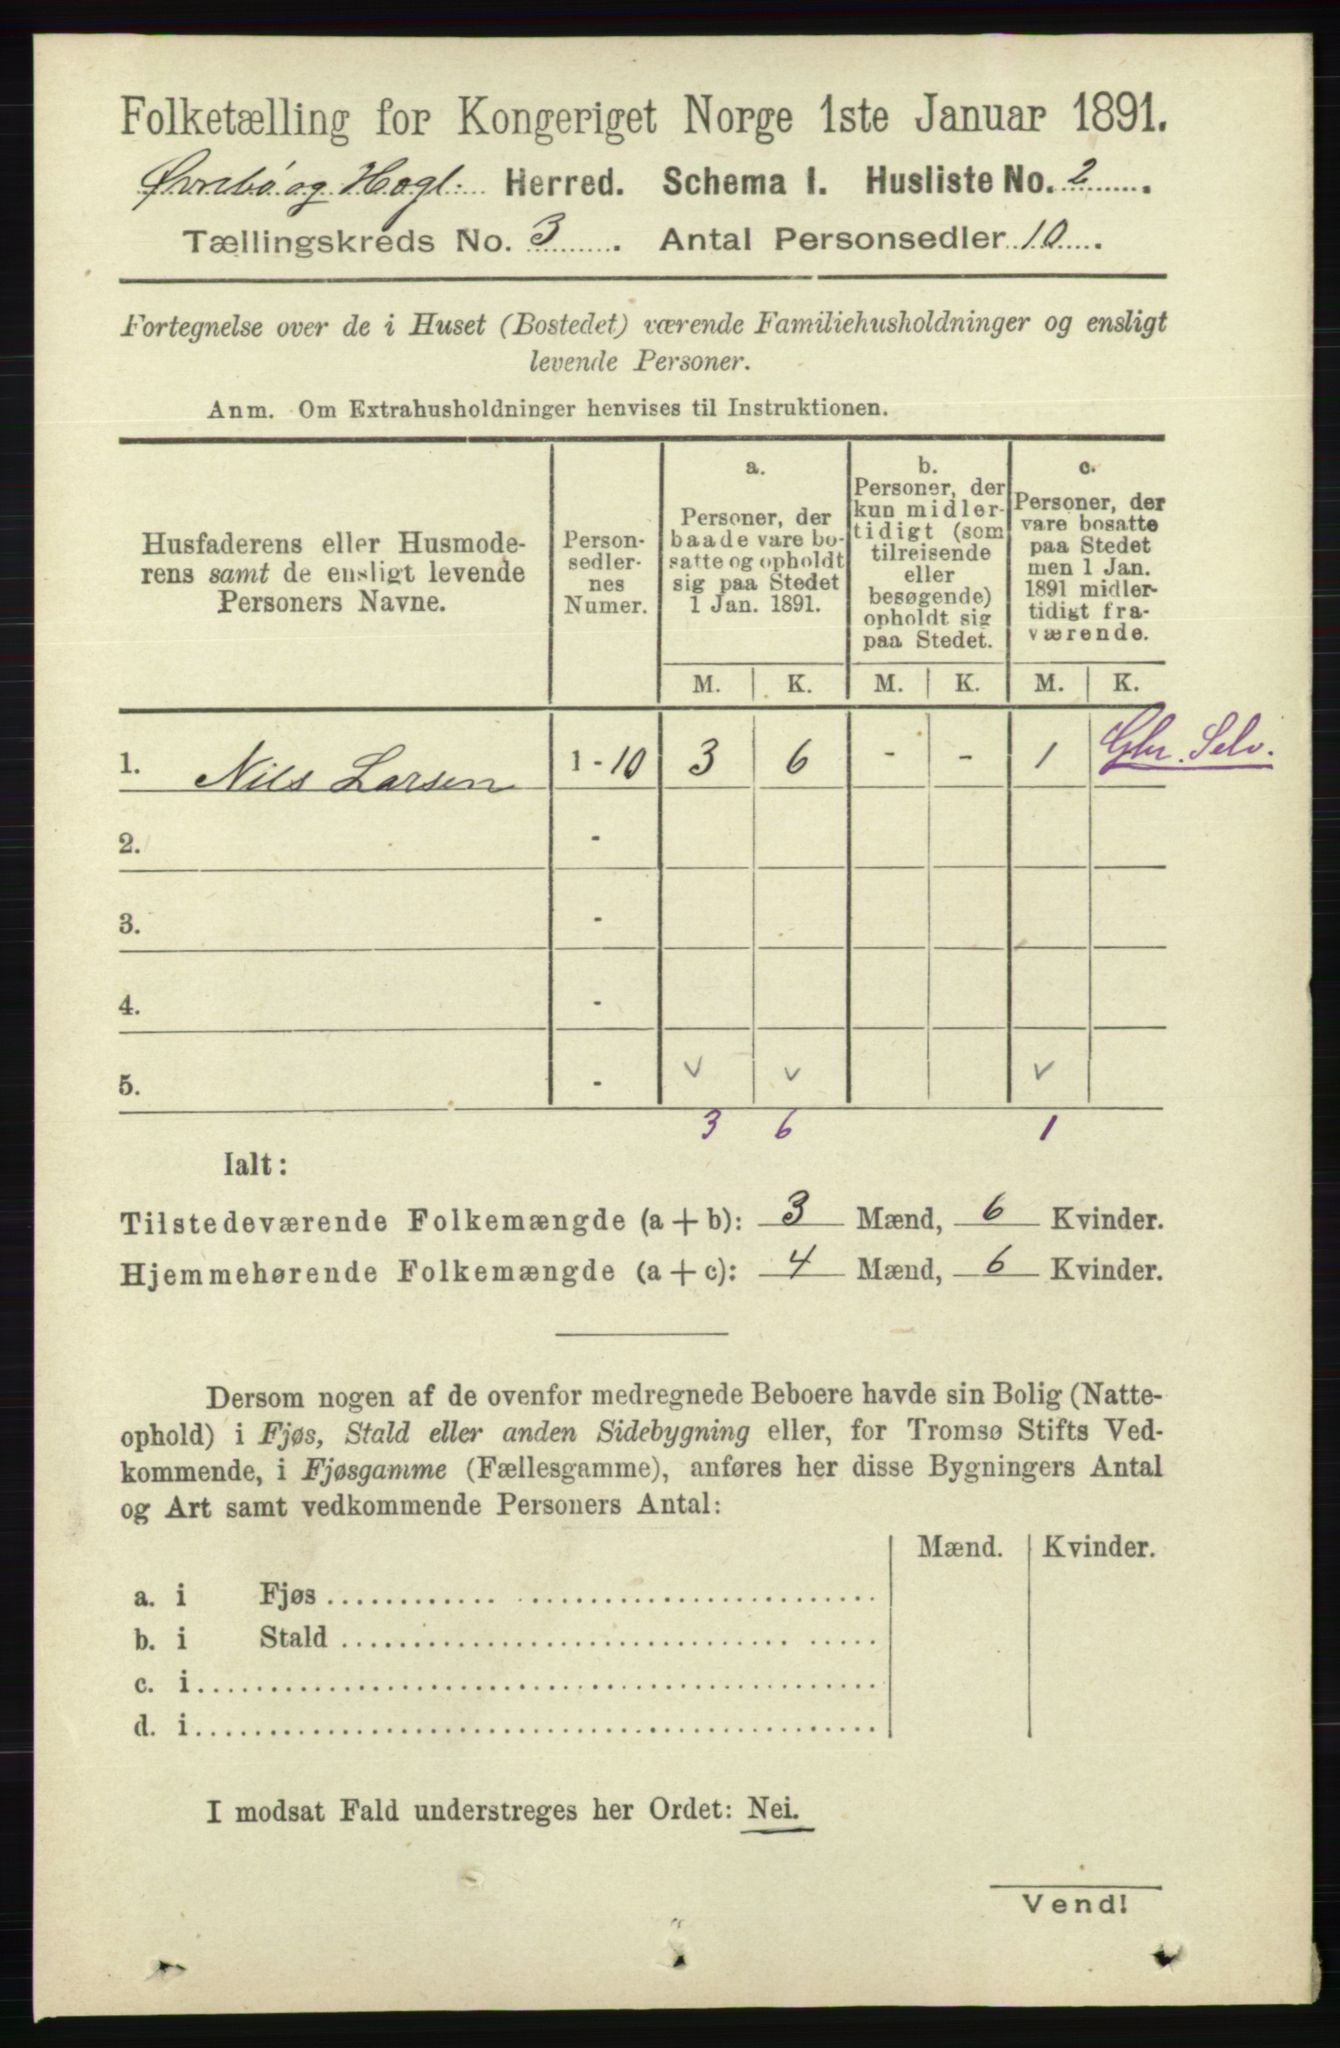 Folketælling for Kongeriget Norge 1ste Januar 1891.
Øvrebö og Hægl. Herred. Schema I. Husliste No. 2.
Tællingskreds No. 3. Antal Personsedler 10.
Fortegnelse over de i Huset (Bostedet) værende Familiehusholdninger og ensligt
levende Personer.
Anm. Om Extrahusholdninger henvises til Instruktionen.
Husfaderens eller Husmode-
rens samt de ensligt levende
Personers Navne.
Person-
sedler-
nes
Numer.
a.
Personer, der
baade vare bo-
satte og opholdt
sig paa Stedet
1 Jan. 1891.
b.
Personer, der
kun midler-
tidigt (som
tilreisende
eller
besøgende)
opholdt sig
paa Stedet.
c.
Personer, der
vare bosatte
paa Stedet
men 1 Jan.
1891 midler-
tidigt fra-
værende.
M. K. M. K. M. K.
1. Nils Larsen 1 - 10 3 6 - - 1 Gbr. Selv.
2. -
3. -
4. -
5. - v v v
3 6 1
Ialt:
Tilstedeværende Folkemængde (a + b): 3 Mænd, 6 Kvinder.
Hjemmehørende Folkemængde (a + c): 4 Mænd, 6 Kvinder.
Dersom nogen af de ovenfor medregnede Beboere havde sin Bolig (Natte-
ophold) i Fjøs, Stald eller anden Sidebygning eller, for Tromsø Stifts Ved-
kommende, i Fjøsgamme (Fællesgamme), anføres her disse Bygningers Antal
og Art samt vedkommende Personers Antal:
Mænd. Kvinder.
a. i Fjøs
b. i Stald
c. i
d. i
I modsat Fald understreges her Ordet: Nei.
Vend!